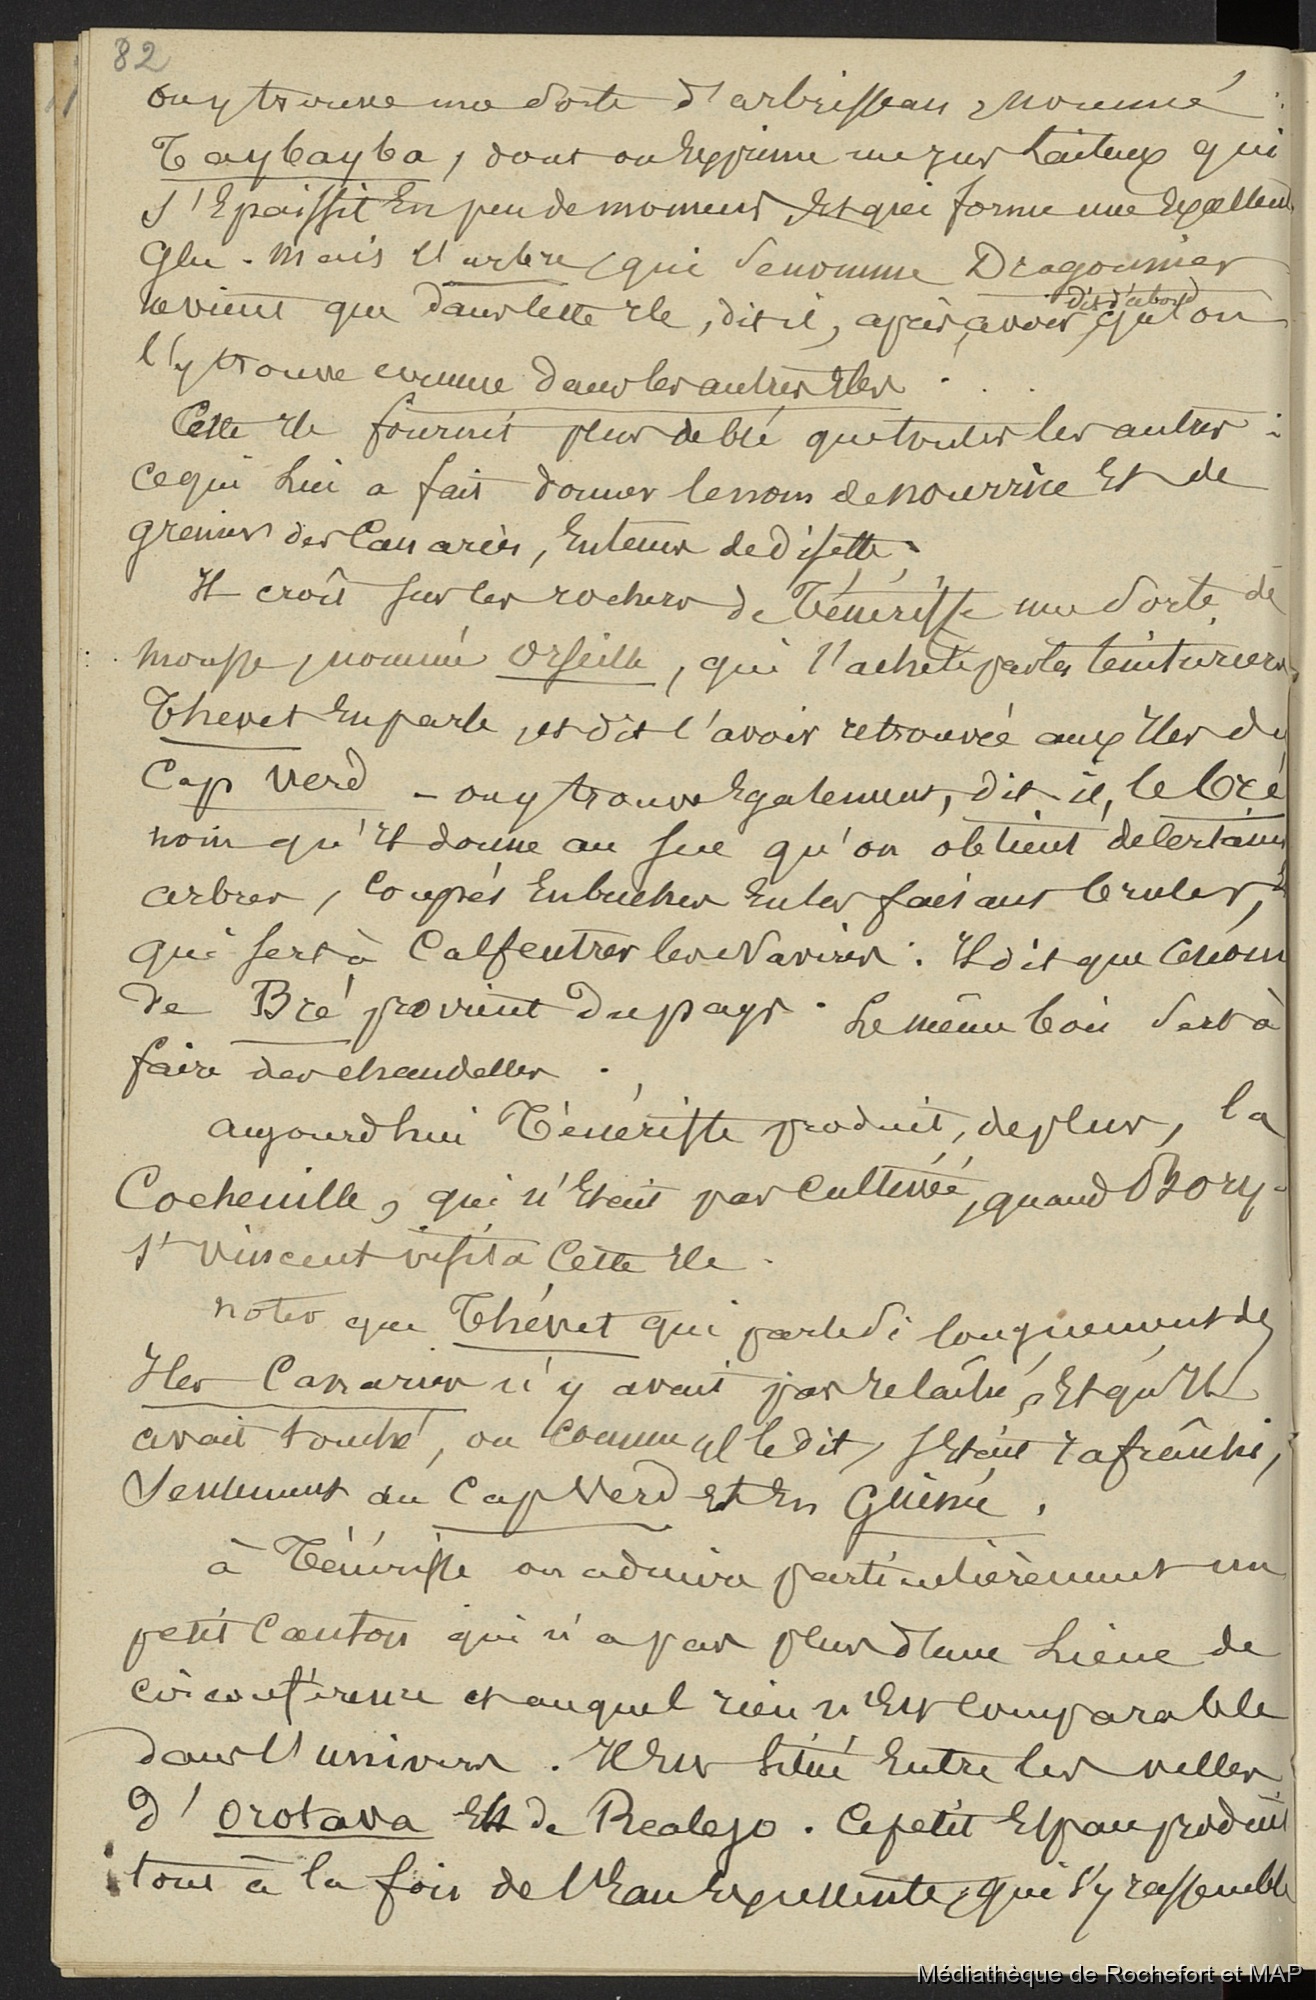 82
on y trouve une sorte d'arbrisseau, nommé :
Taybayba, dont on exprime un jus laiteux qui
s'épaissit en peu de moment et qui forme une excellente
Glu. Mais l'arbre, qui se nomme Dragonnier
ne vient que dans cette Ile, dit il, après avoir dit d'abord qu'on
l'y trouve comme dans les autres Iles.
Cette Ile fournit plus de blé que toutes les autres :
ce qui lui a fait donner le nom de nourrice et de
grenier des Canaries, en temps de disette.
Il croît sur les rochers de Ténériffe une sorte de
mousse, nommé Orseille, qui s'achète par les teinturiers.
Thevet en parle, et dit l'avoir retrouvée aux Iles du
Cap Verd - on y trouve également, dit-il, le bré
nom qu'il donne au suc qu'on obtient de certains
arbres, coupés en buches en les faisant bruler, et
qui sert à calfeutrer les Navires. Il dit que ce nom
de Bré provient du pays. Le même bois sert à
faire des chandelles.
aujourdhui Ténériffe produit, de plus, la
Cochenille, qui n'était pas cultivée, quand Bory-
St Vincent visita cette Ile.
noter que Thévet qui parle si longuement des
Iles Canaries n'y avait pas relâché, et qu'il
avait touché, ou comme il le dit, s'était rafraîchi,
seulement au Cap Verd et en Guinée.
à Ténériffe on admire particulièrement un
petit Canton qui n'a pas plus d'une lieue de
circonférence et auquel rien n'est comparable
dans l'univers. Il est situé entre les villes
d'Orotava et de Realejo. Ce petit espace produit
tout à la fois de l'eau excellente, qui s'y rassemble
Médiathèque de Rochefort et MAP